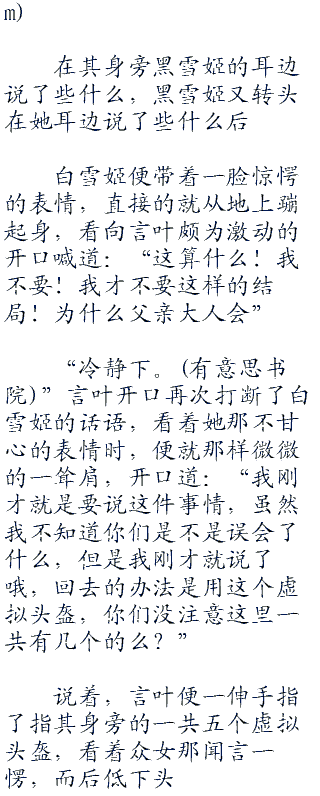 m)
在其身旁黑雪姬的耳边
说了些什么，黑雪姬又转头
在她耳边说了些什么后
白雪姬便带着一脸惊愕
的表情，直接的就从地上蹦
起身，看向言叶颇为激动的
开口喊道：“这算什么！我
不要！我才不要这样的结
局！为什么父亲大人会”
“冷静下。(有意思书
院)”言叶开口再次打断了白
雪姬的话语，看着她那不甘
心的表情时，便就那样微微
的一耸肩，开口道：“我刚
才就是要说这件事情，虽然
我不知道你们是不是误会了
什么，但是我刚才就说了
哦，回去的办法是用这个虚
拟头盔，你们没注意这里一
共有几个的么？”
说着，言叶便一伸手指
了指其身旁的一共五个虚拟
头盔，看着众女那闻言一
愣，而后低下头